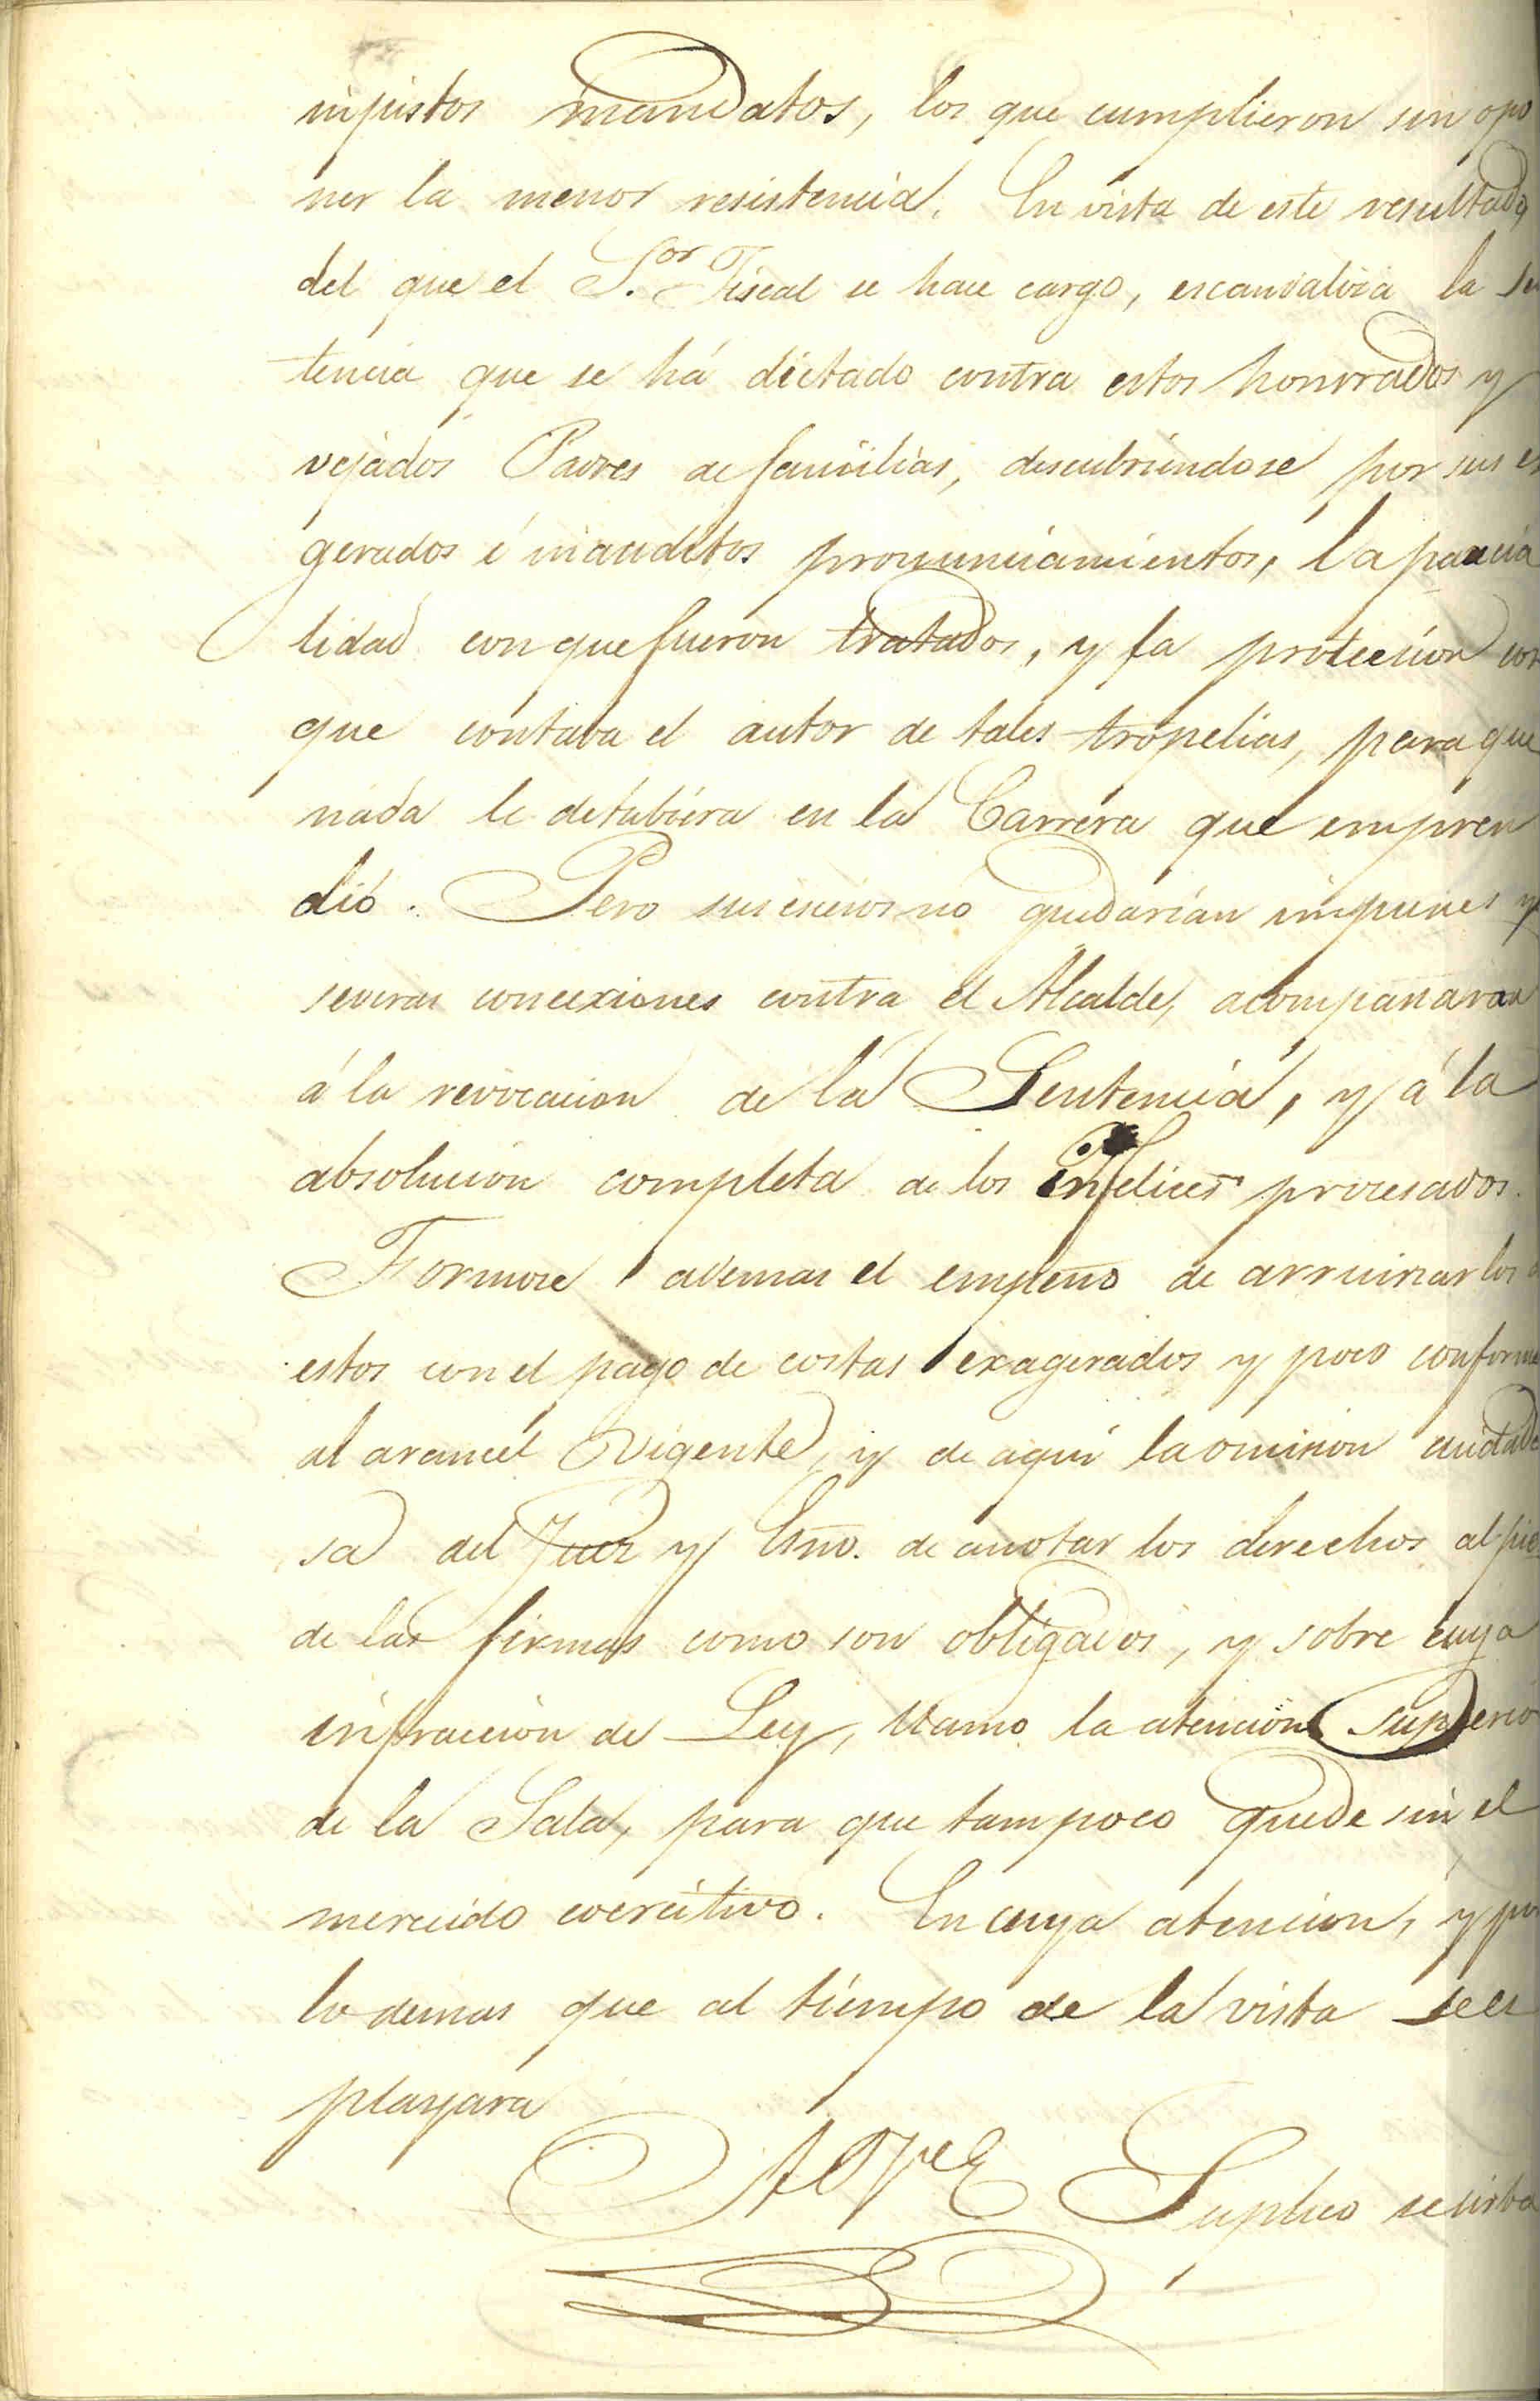 injustos mandatos, los que cumplieron sin opo
ner la menor resistencia. En vista de este resultado,
del que el S.or Fiscal se hace cargo, escandaliza la sen
tencia que se há dictado contra estos honrrados y
vejados Padres de familias, descubriendose por sus ex
gerados é inauditos pronunciamientos, la parcia
lidad con que fueron tratados, y la proteccion con
que contaba el autor de tales tropelias, para que
nada le detubiera en la Carrera que empren
dió. Pero sus excesos no quedarían impunes y
severas concexiones contra el Alcalde, acompañaran
á la revocacion de la Sentencia, y á la
absolucion completa de los infelices procesados.
Formose ademas el empeño de arruinar los á
estos con el pago de costas exageradas y poco conforme
al arancel vigente, y de aquí la omision cuidado
sa del Juez y Esno. de anotar los derechos al pie
de las firmas como son obligados, y sobre cuya
infraccion de Ley, llamo la atencion superior
de la Sala, para que tampoco quede sin el
merecido coercitivo. En cuya atencion, y por
lo demas que al tiempo de la vista se es
playara
A V E Suplico se sirba